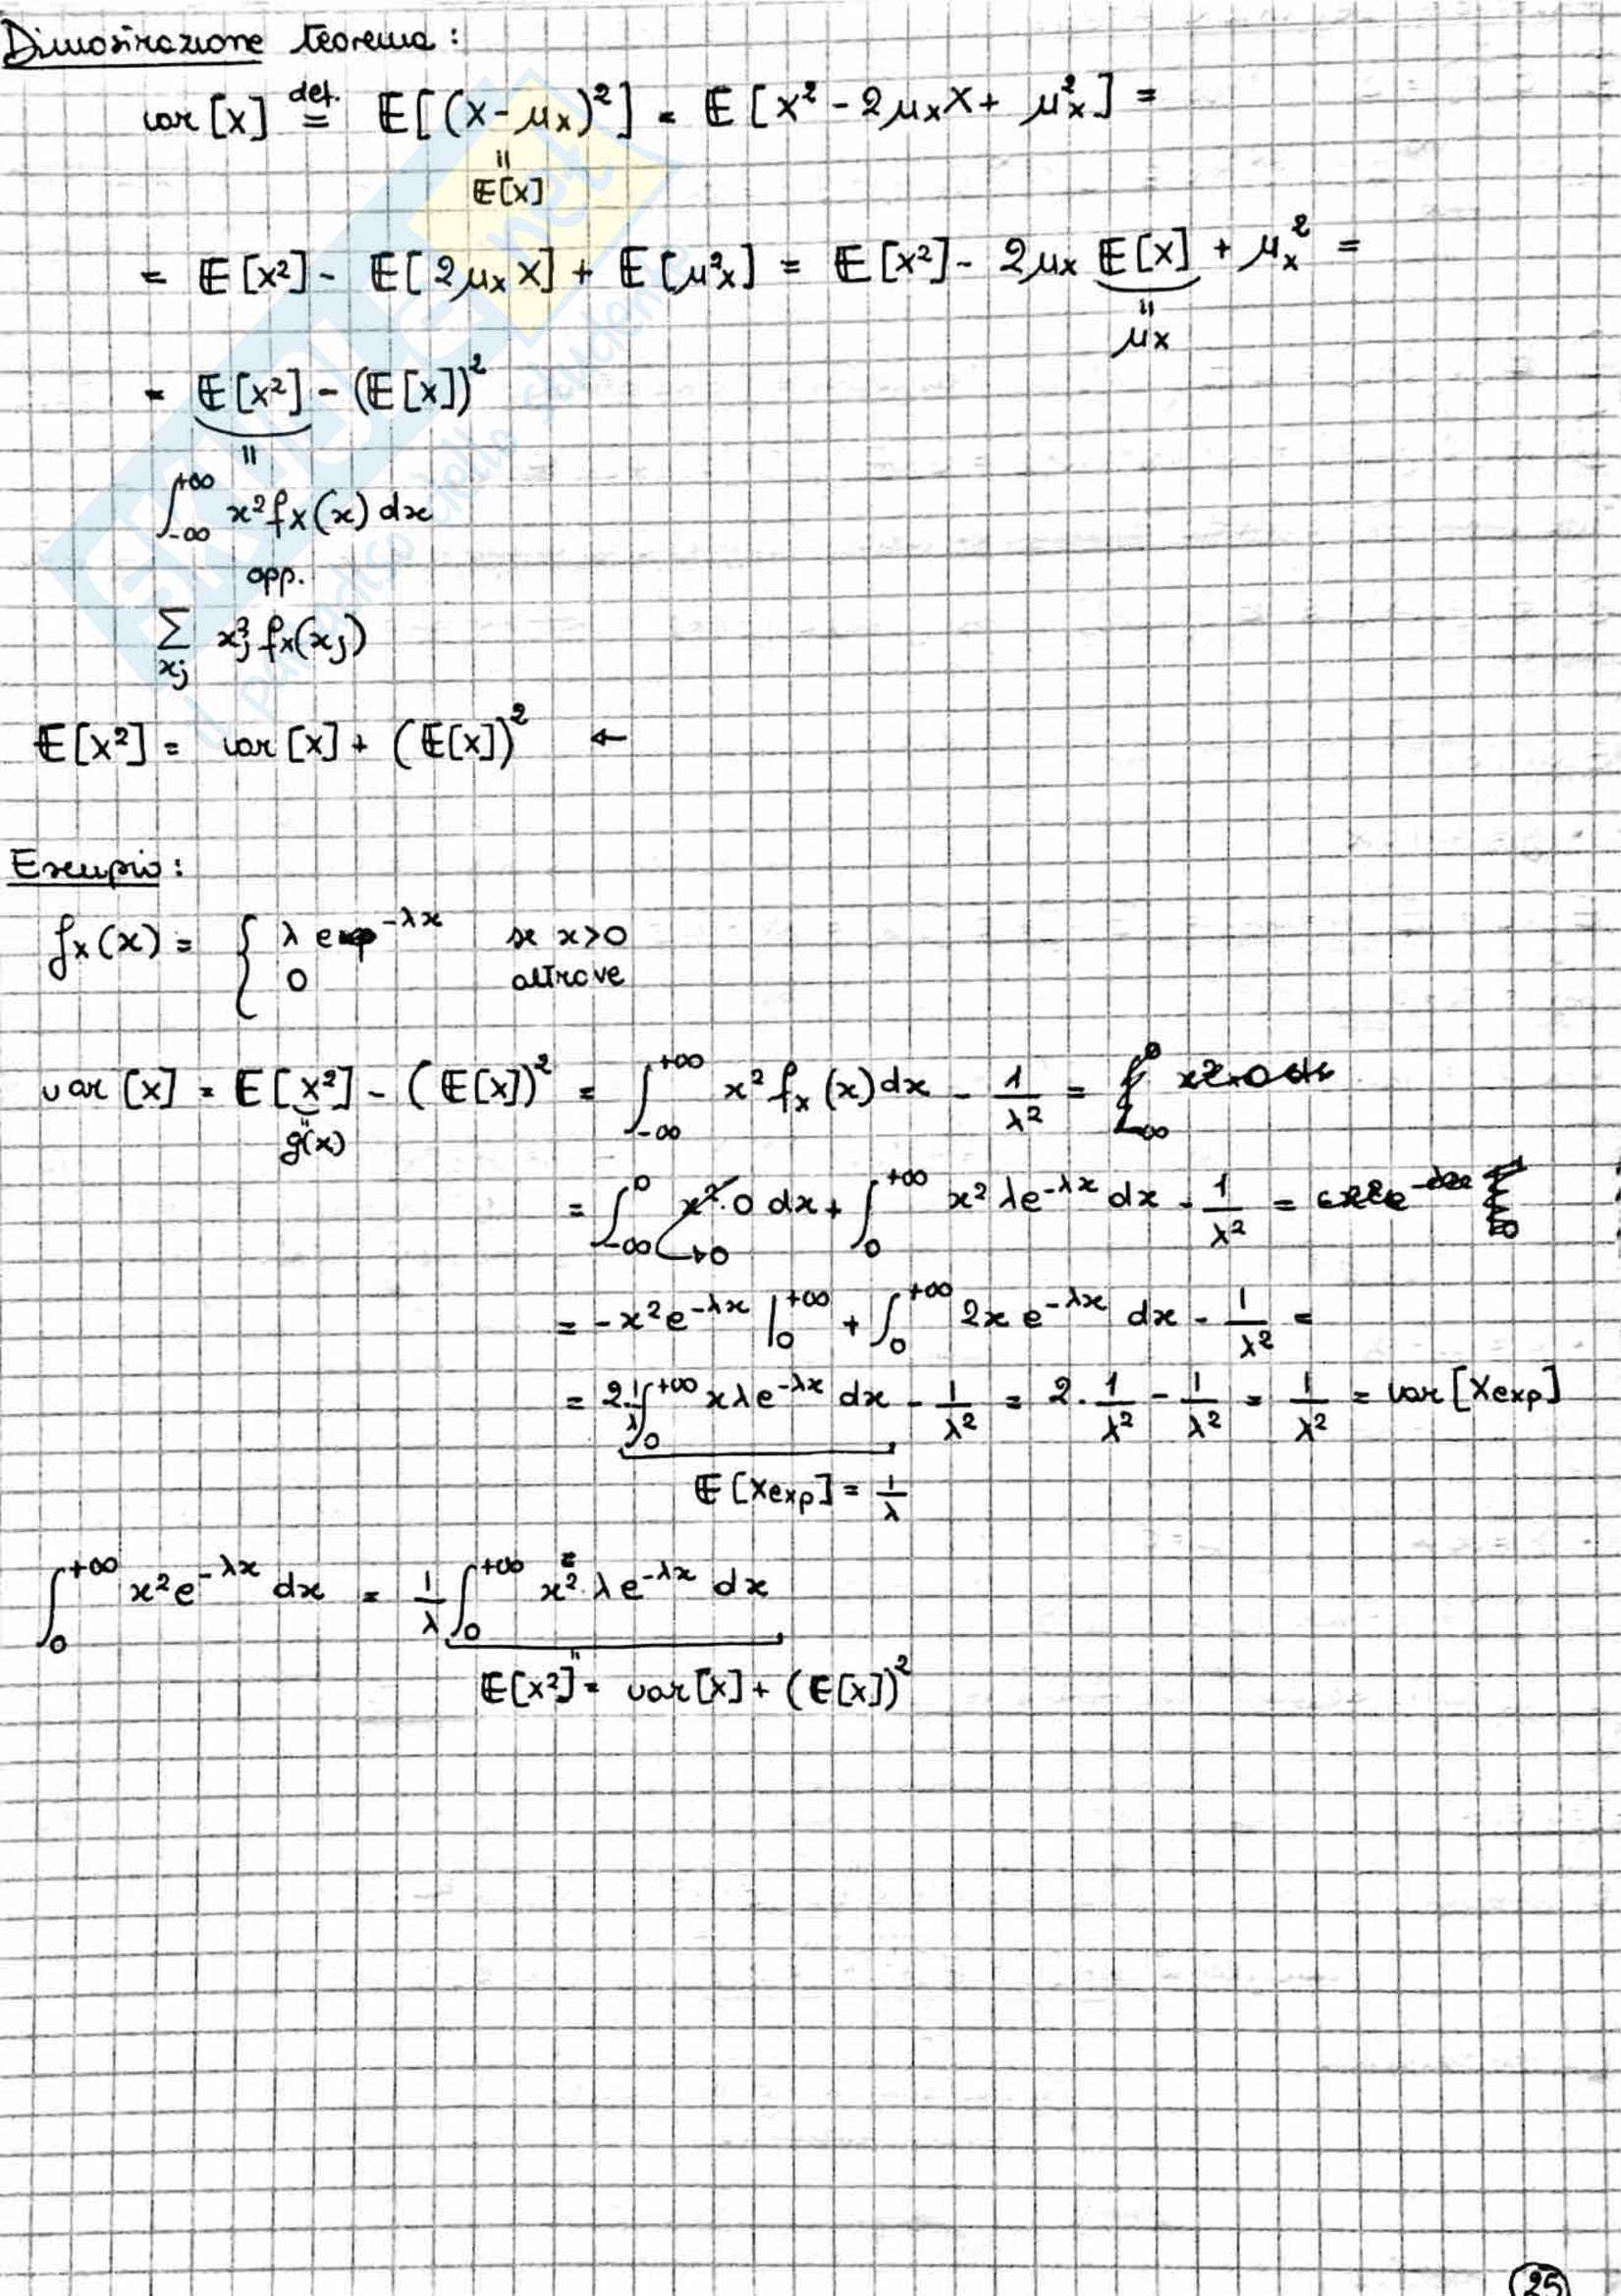 Dimostrazione teorema:
var [X] def. = E[(X-μx)²] = E[X² - 2μxX + μ²x] =
"
E[X]
= E[X²] - E[2μxX] + E[μ²x] = E[X²] - 2μx E[X] + μx² =
"
μx
= E[X²] - (E[X])²
"
∫-∞+∞ x² fX(x) dx
opp.
∑xj x²j fX(xj)
E[X²] = var [X] + (E[X])² ←
Esempio:
fX(x) = { λ e^-λx se x>0
0 altrove
var [X] = E[X²] - (E[X])² = ∫-∞+∞ x² fX(x) dx - 1/λ² =
g(x)
= ∫-∞0 x²·0 dx + ∫0+∞ x² λe^-λx dx - 1/λ² =
→0
= -x²e^-λx |0+∞ + ∫0+∞ 2x e^-λx dx - 1/λ² =
= 2·1/λ ∫0+∞ xλe^-λx dx - 1/λ² = 2·1/λ² - 1/λ² = 1/λ² = var [Xexp]
E[Xexp] = 1/λ
∫0+∞ x²e^-λx dx = 1/λ ∫0+∞ x²·λe^-λx dx
E[X²] = var [X] + (E[X])²
25
SKUOLA.net
il paradiso dello studente